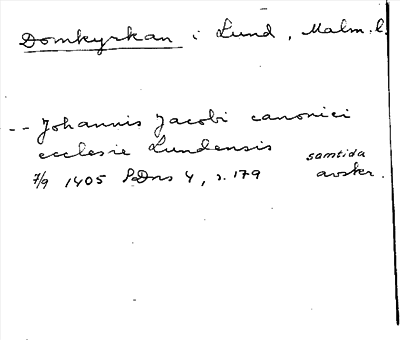 Domkyrkan i Lund, Malm. l.
-- Johannis Jacobi canonici
ecclesie Lundensis
7/9 1405 SDns 4, s. 179 samtida
avskr.